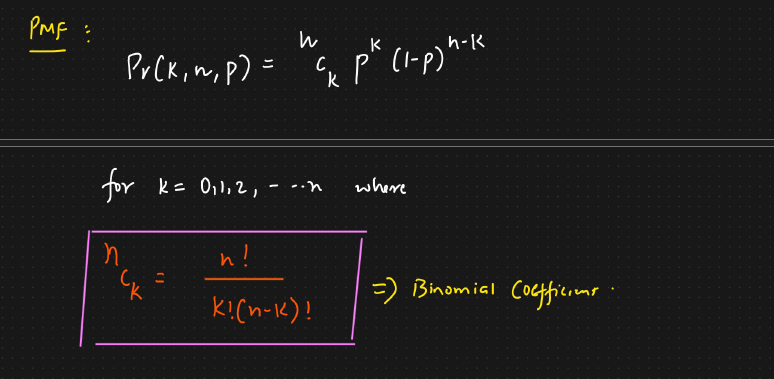 PMF :
Pr(k, n, p) = ⁿCₖ pᵏ (1-p)ⁿ⁻ᵏ
for k = 0,1,2, - - - n where
ⁿCₖ = n! / k!(n-k)! => Binomial Coefficient.